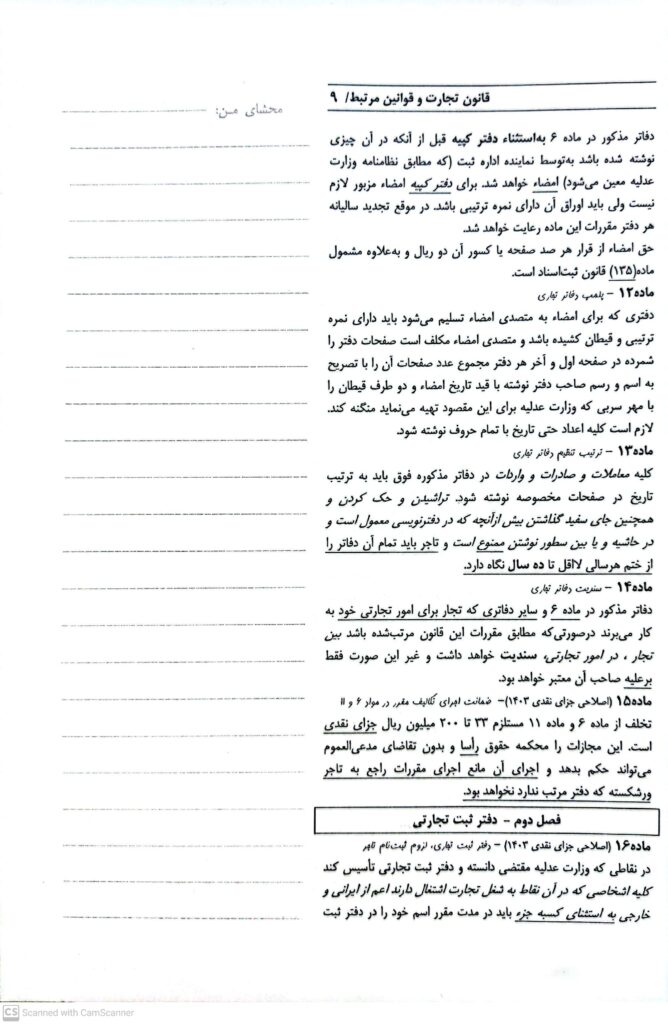 قانون تجارت و قوانین مرتبط/ ۹
محشای من:
دفاتر مذکور در ماده ۶ به‌استثناء دفتر کپیه قبل از آنکه در آن چیزی
نوشته شده باشد به‌توسط نماینده اداره ثبت (که مطابق نظامنامه وزارت
عدلیه معین می‌شود) امضاء خواهد شد. برای دفتر کپیه امضاء مزبور لازم
نیست ولی باید اوراق آن دارای نمره ترتیبی باشد. در موقع تجدید سالیانه
هر دفتر مقررات این ماده رعایت خواهد شد.
حق امضاء از قرار هر صد صفحه یا کسور آن دو ریال و به‌علاوه مشمول
ماده(۱۳۵) قانون ثبت‌اسناد است.
ماده۱۲ – پلمپ دفاتر تجاری
دفتری که برای امضاء به متصدی امضاء تسلیم می‌شود باید دارای نمره
ترتیبی و قیطان کشیده باشد و متصدی امضاء مکلف است صفحات دفتر را
شمرده در صفحه اول و آخر هر دفتر مجموع عدد صفحات آن را با تصریح
به اسم و رسم صاحب دفتر نوشته با قید تاریخ امضاء و دو طرف قیطان را
با مهر سربی که وزارت عدلیه برای این مقصود تهیه می‌نماید منگنه کند.
لازم است کلیه اعداد حتی تاریخ با تمام حروف نوشته شود.
ماده۱۳ – ترتیب تنظیم دفاتر تجاری
کلیه معاملات و صادرات و واردات در دفاتر مذکوره فوق باید به ترتیب
تاریخ در صفحات مخصوصه نوشته شود. تراشیدن و حک کردن و
همچنین جای سفید گذاشتن بیش ازآنچه که در دفترنویسی معمول است و
در حاشیه و یا بین سطور نوشتن ممنوع است و تاجر باید تمام آن دفاتر را
از ختم هرسالی لااقل تا ده سال نگاه دارد.
ماده۱۴ – سندیت دفاتر تجاری
دفاتر مذکور در ماده ۶ و سایر دفاتری که تجار برای امور تجارتی خود به
کار می‌برند درصورتی‌که مطابق مقررات این قانون مرتب‌شده باشد بین
تجار ، در امور تجارتی، سندیت خواهد داشت و غیر این صورت فقط
برعلیه صاحب آن معتبر خواهد بود.
ماده۱۵ (اصلاحی جزای نقدی ۱۴۰۳)– ضمانت اجرای تکالیف مقرر در مواد ۶ و ۱۱
تخلف از ماده ۶ و ماده ۱۱ مستلزم ۳۳ تا ۲۰۰ میلیون ریال جزای نقدی
است. این مجازات را محکمه حقوق رأسا و بدون تقاضای مدعی‌العموم
می‌تواند حکم بدهد و اجرای آن مانع اجرای مقررات راجع به تاجر
ورشکسته که دفتر مرتب ندارد نخواهد بود.
فصل دوم – دفتر ثبت تجارتی
ماده۱۶ (اصلاحی جزای نقدی ۱۴۰۳) – دفتر ثبت تجاری، لزوم ثبت‌نام تاجر
در نقاطی که وزارت عدلیه مقتضی دانسته و دفتر ثبت تجارتی تأسیس کند
کلیه اشخاصی که در آن نقاط به شغل تجارت اشتغال دارند اعم از ایرانی و
خارجی به استثنای کسبه جزء باید در مدت مقرر اسم خود را در دفتر ثبت
CS Scanned with CamScanner